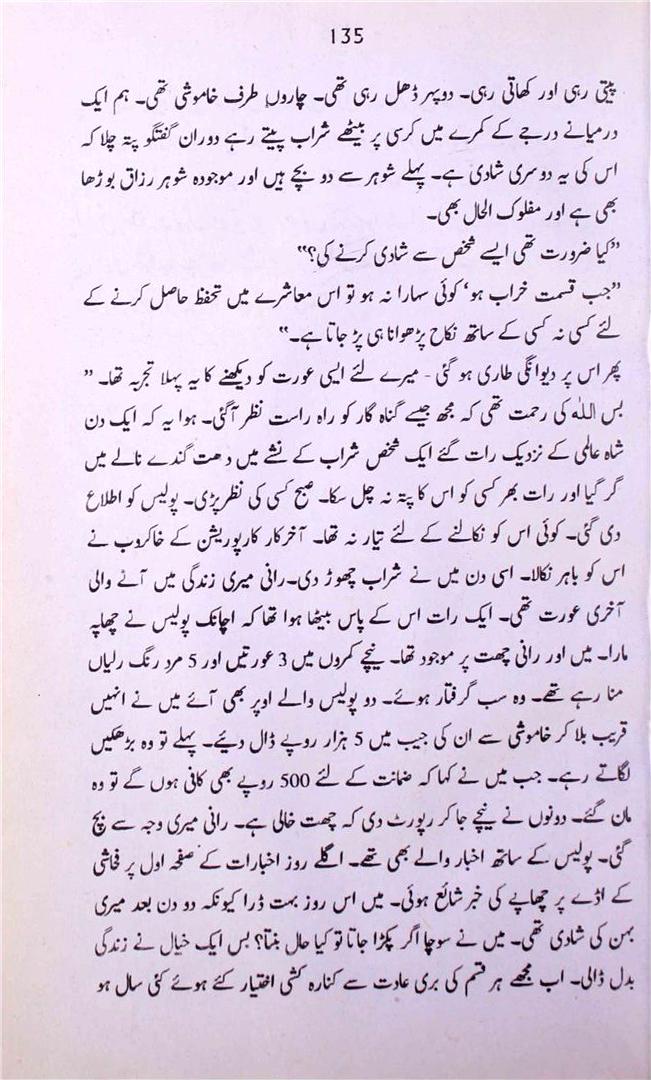 135
پیتی رہی اور کھاتی رہی۔ دوپہر ڈھل رہی تھی۔ چاروں طرف خاموشی تھی۔ ہم ایک
درمیانے درجے کے کمرے میں کرسی پر بیٹھے شراب پیتے رہے دوران گفتگو پتہ چلا کہ
اس کی یہ دوسری شادی ہے۔ پہلے شوہر سے دو بچے ہیں اور موجودہ شوہر رزاق بوڑھا
بھی ہے اور مفلوک الحال بھی۔
”کیا ضرورت تھی ایسے شخص سے شادی کرنے کی؟“
”جب قسمت خراب ہو‘ کوئی سہارا نہ ہو تو اس معاشرے میں تحفظ حاصل کرنے کے
لئے کسی نہ کسی کے ساتھ نکاح پڑھوانا ہی پڑ جاتا ہے۔“
پھر اس پر دیوانگی طاری ہو گئی - میرے لئے ایسی عورت کو دیکھنے کا یہ پہلا تجربہ تھا۔ ”
بس اللہ کی رحمت تھی کہ مجھ جیسے گناہ گار کو راہ راست نظر آگئی۔ ہوا یہ کہ ایک دن
شاہ عالمی کے نزدیک رات گئے ایک شخص شراب کے نشے میں دھت گندے نالے میں
گر گیا اور رات بھر کسی کو اس کا پتہ نہ چل سکا۔ صبح کسی کی نظر پڑی۔ پولیس کو اطلاع
دی گئی۔ کوئی اس کو نکالنے کے لئے تیار نہ تھا۔ آخرکار کارپوریشن کے خاکروب نے
اس کو باہر نکالا۔ اسی دن میں نے شراب چھوڑ دی۔رانی میری زندگی میں آنے والی
آخری عورت تھی۔ ایک رات اس کے پاس بیٹھا ہوا تھا کہ اچانک پولیس نے چھاپہ
مارا۔ میں اور رانی چھت پر موجود تھا۔ نیچے کمروں میں 3 عورتیں اور 5 مرد رنگ رلیاں
منا رہے تھے۔ وہ سب گرفتار ہوئے۔ دو پولیس والے اوپر بھی آئے میں نے انہیں
قریب بلا کر خاموشی سے ان کی جیب میں 5 ہزار روپے ڈال دیئے۔ پہلے تو وہ بڑھکیں
لگاتے رہے۔ جب میں نے کہا کہ ضمانت کے لئے 500 روپے بھی کافی ہوں گے تو وہ
مان گئے۔ دونوں نے نیچے جا کر رپورٹ دی کہ چھت خالی ہے۔ رانی میری وجہ سے بچ
گئی۔ پولیس کے ساتھ اخبار والے بھی تھے۔ اگلے روز اخبارات کے صفحہ اول پر فحاشی
کے اڈے پر چھاپے کی خبر شائع ہوئی۔ میں اس روز بہت ڈرا کیونکہ دو دن بعد میری
بہن کی شادی تھی۔ میں نے سوچا اگر پکڑا جاتا تو کیا حال بنتا؟ بس ایک خیال نے زندگی
بدل ڈالی۔ اب مجھے ہر قسم کی بری عادت سے کنارہ کشی اختیار کئے ہوئے کئی سال ہو